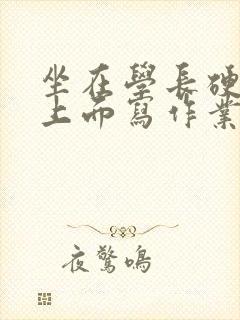 坐在學長硬
上而寫作業
夜驚鳴